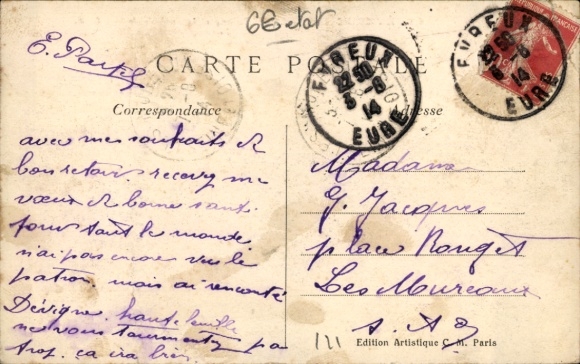 6 Bc tot
E.
CARTE POSTALE
Correspondance
Adresse
EVREUX
22 50
3 - 8
14
EURE
EVREUX
22 50
3 - 8
14
EURE
REPUBLIQUE FRANÇAISE
avec mes souhaits de
bon retour recevez mes
vœux de bonne santé
pour tout le monde
n'ai pas encore vu le
patron, mais ai rencontré
Dévigne, hautefeuille
ne vous tourmentez pas
trop. ça ira bien
Madame
G. Jacques
place Rouget
Les Mureaux
S. & O
111
Edition Artistique C. M. Paris